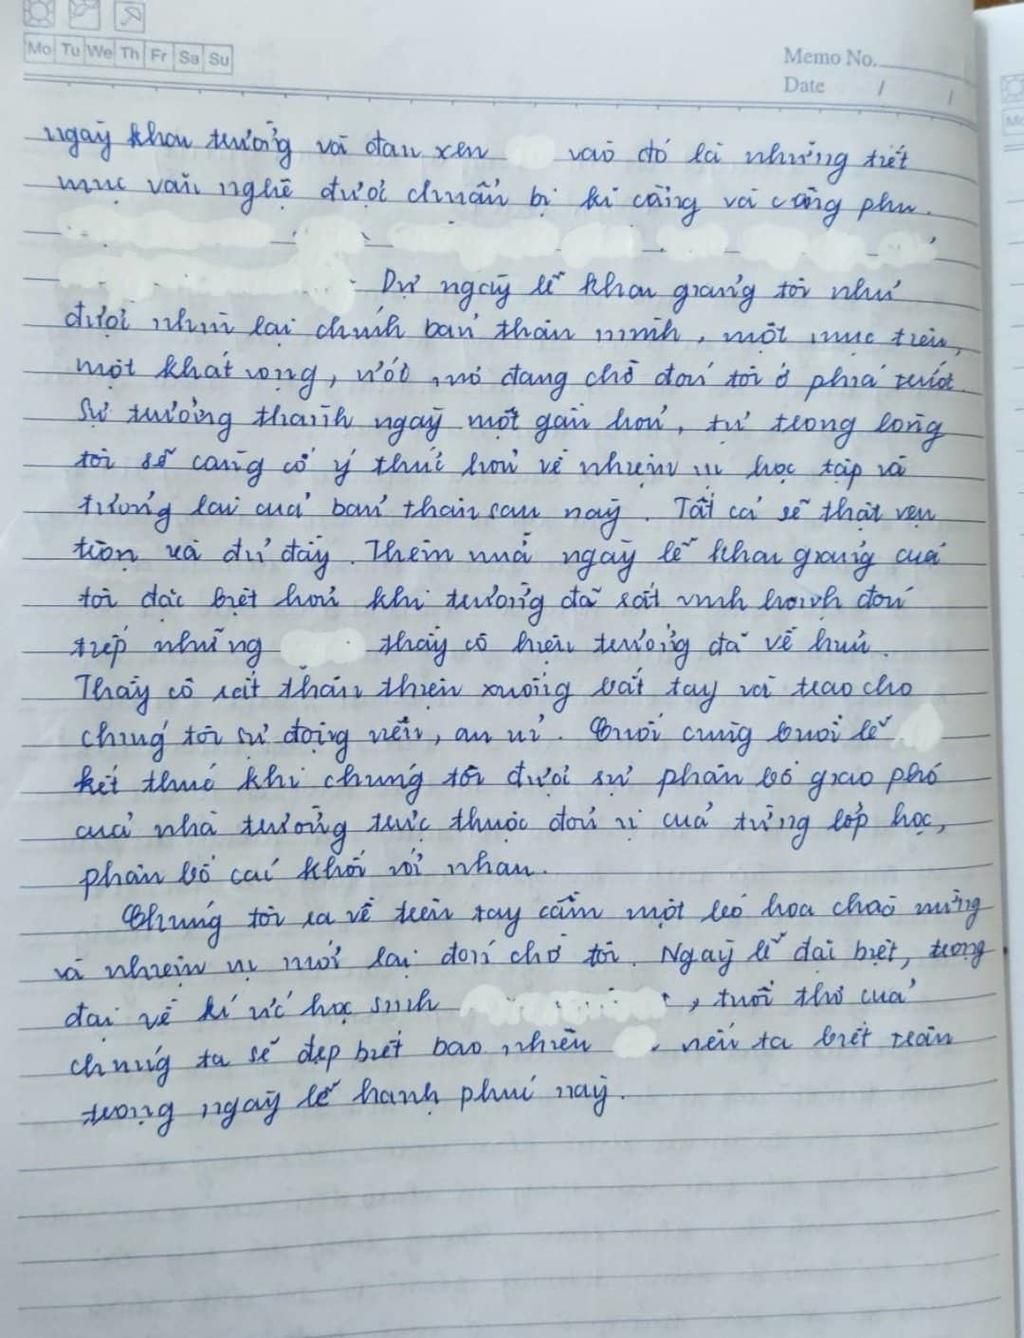 Mo Tu We Th Fr Sa Su
Memo No.
Date / /
ngày khai trường và đan xen vào đó là những tiết
mục văn nghệ được chuẩn bị kĩ càng và công phu.
Dự ngày lễ khai giảng tôi như
được nhìn lại chính bản thân mình, một mục tiêu,
một khát vọng, ước mơ đang chờ đón tôi ở phía trước.
Sự trưởng thành ngày một gần hơn, từ trong lòng
tôi sẽ càng có ý thức hơn về nhiệm vụ học tập và
tương lai của bản thân sau này. Tất cả sẽ thật vẹn
tròn và đủ đầy. Thêm nữa ngày lễ khai giảng của
tôi đặc biệt hơn khi trường đã rất vinh hạnh đón
tiếp những thầy cô hiệu trưởng đã về hưu.
Thầy cô rất thân thiện xuống bắt tay và trao cho
chúng tôi sự động viên, an ủi. Cuối cùng buổi lễ
kết thúc khi chúng tôi được sự phân bố giao phó
của nhà trường trực thuộc đơn vị của từng lớp học,
phân bố các khối với nhau.
Chúng tôi ra về trên tay cầm một bó hoa chào mừng
và nhiệm vụ mới lại đón chờ tôi. Ngày lễ đại biệt, trọng
đại về kí ức học sinh , tuổi thơ của
chúng ta sẽ đẹp biết bao nhiêu nếu ta biết trân
trọng ngày lễ hạnh phúc này.